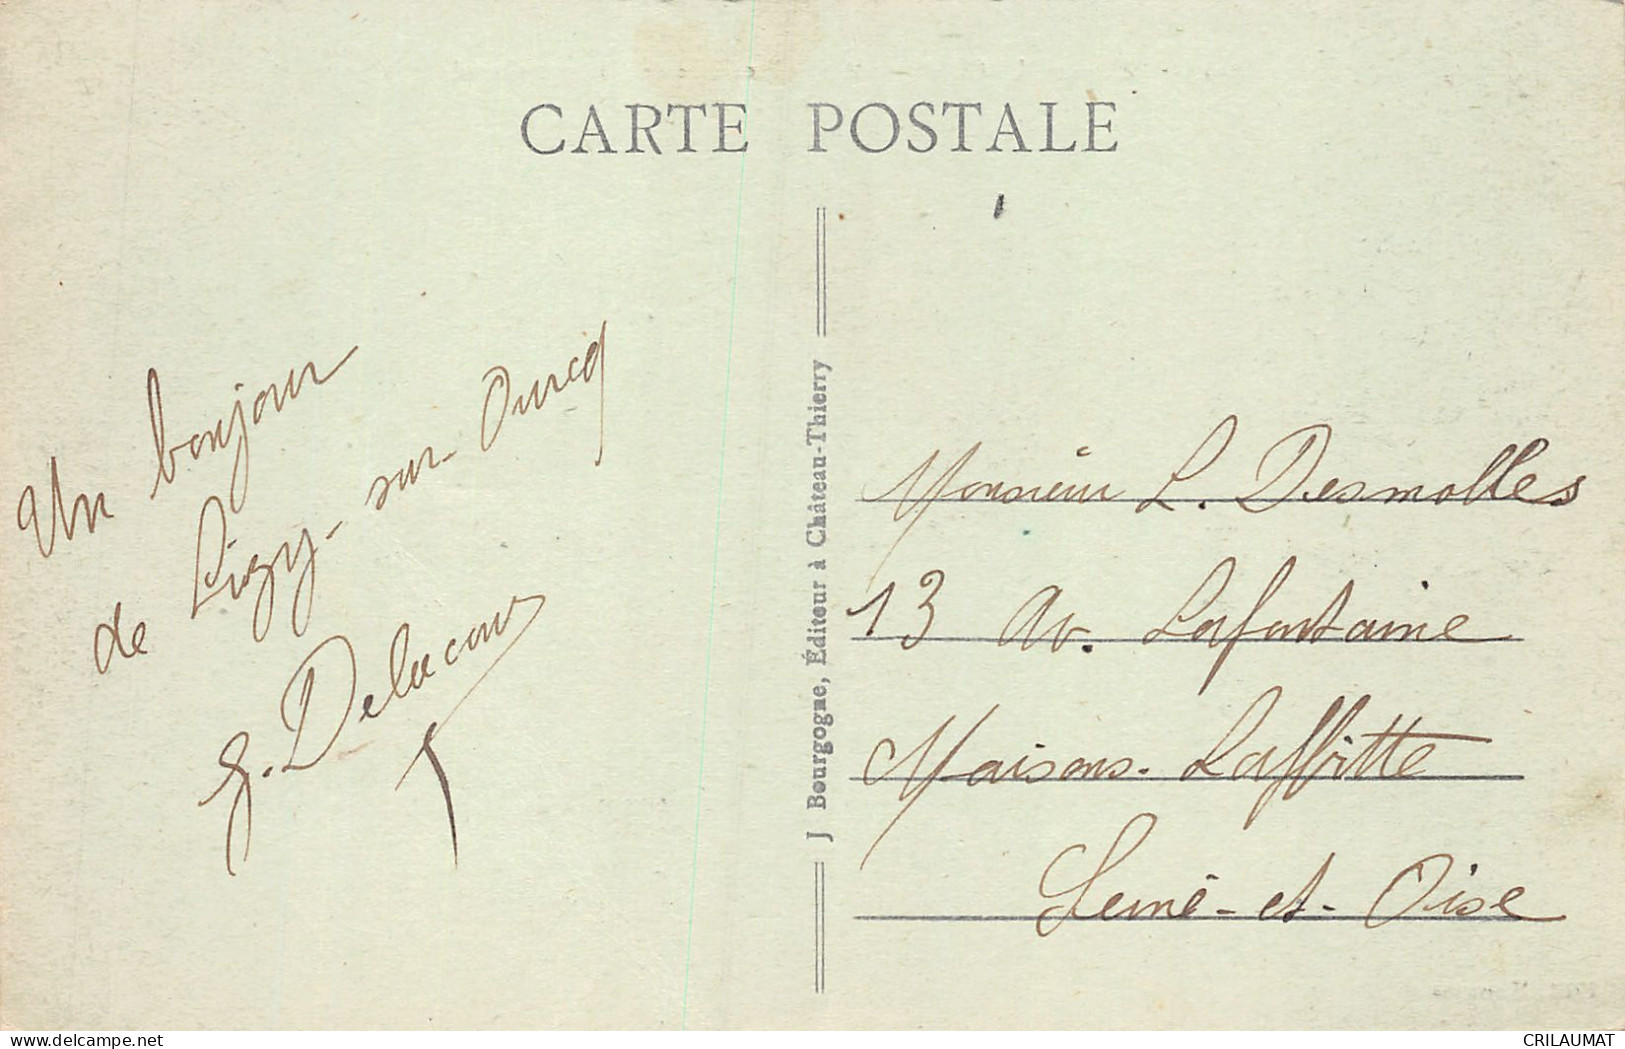 CARTE POSTALE
Un bonjour
de Lizy-sur-Ourcq
G. Delacour
J Bourgogne, Éditeur à Château-Thierry
Monsieur L. Desmolles
13 Av. Lafontaine
Maisons-Laffitte
Seine-et-Oise
www.delcampe.net
CRILAUMAT